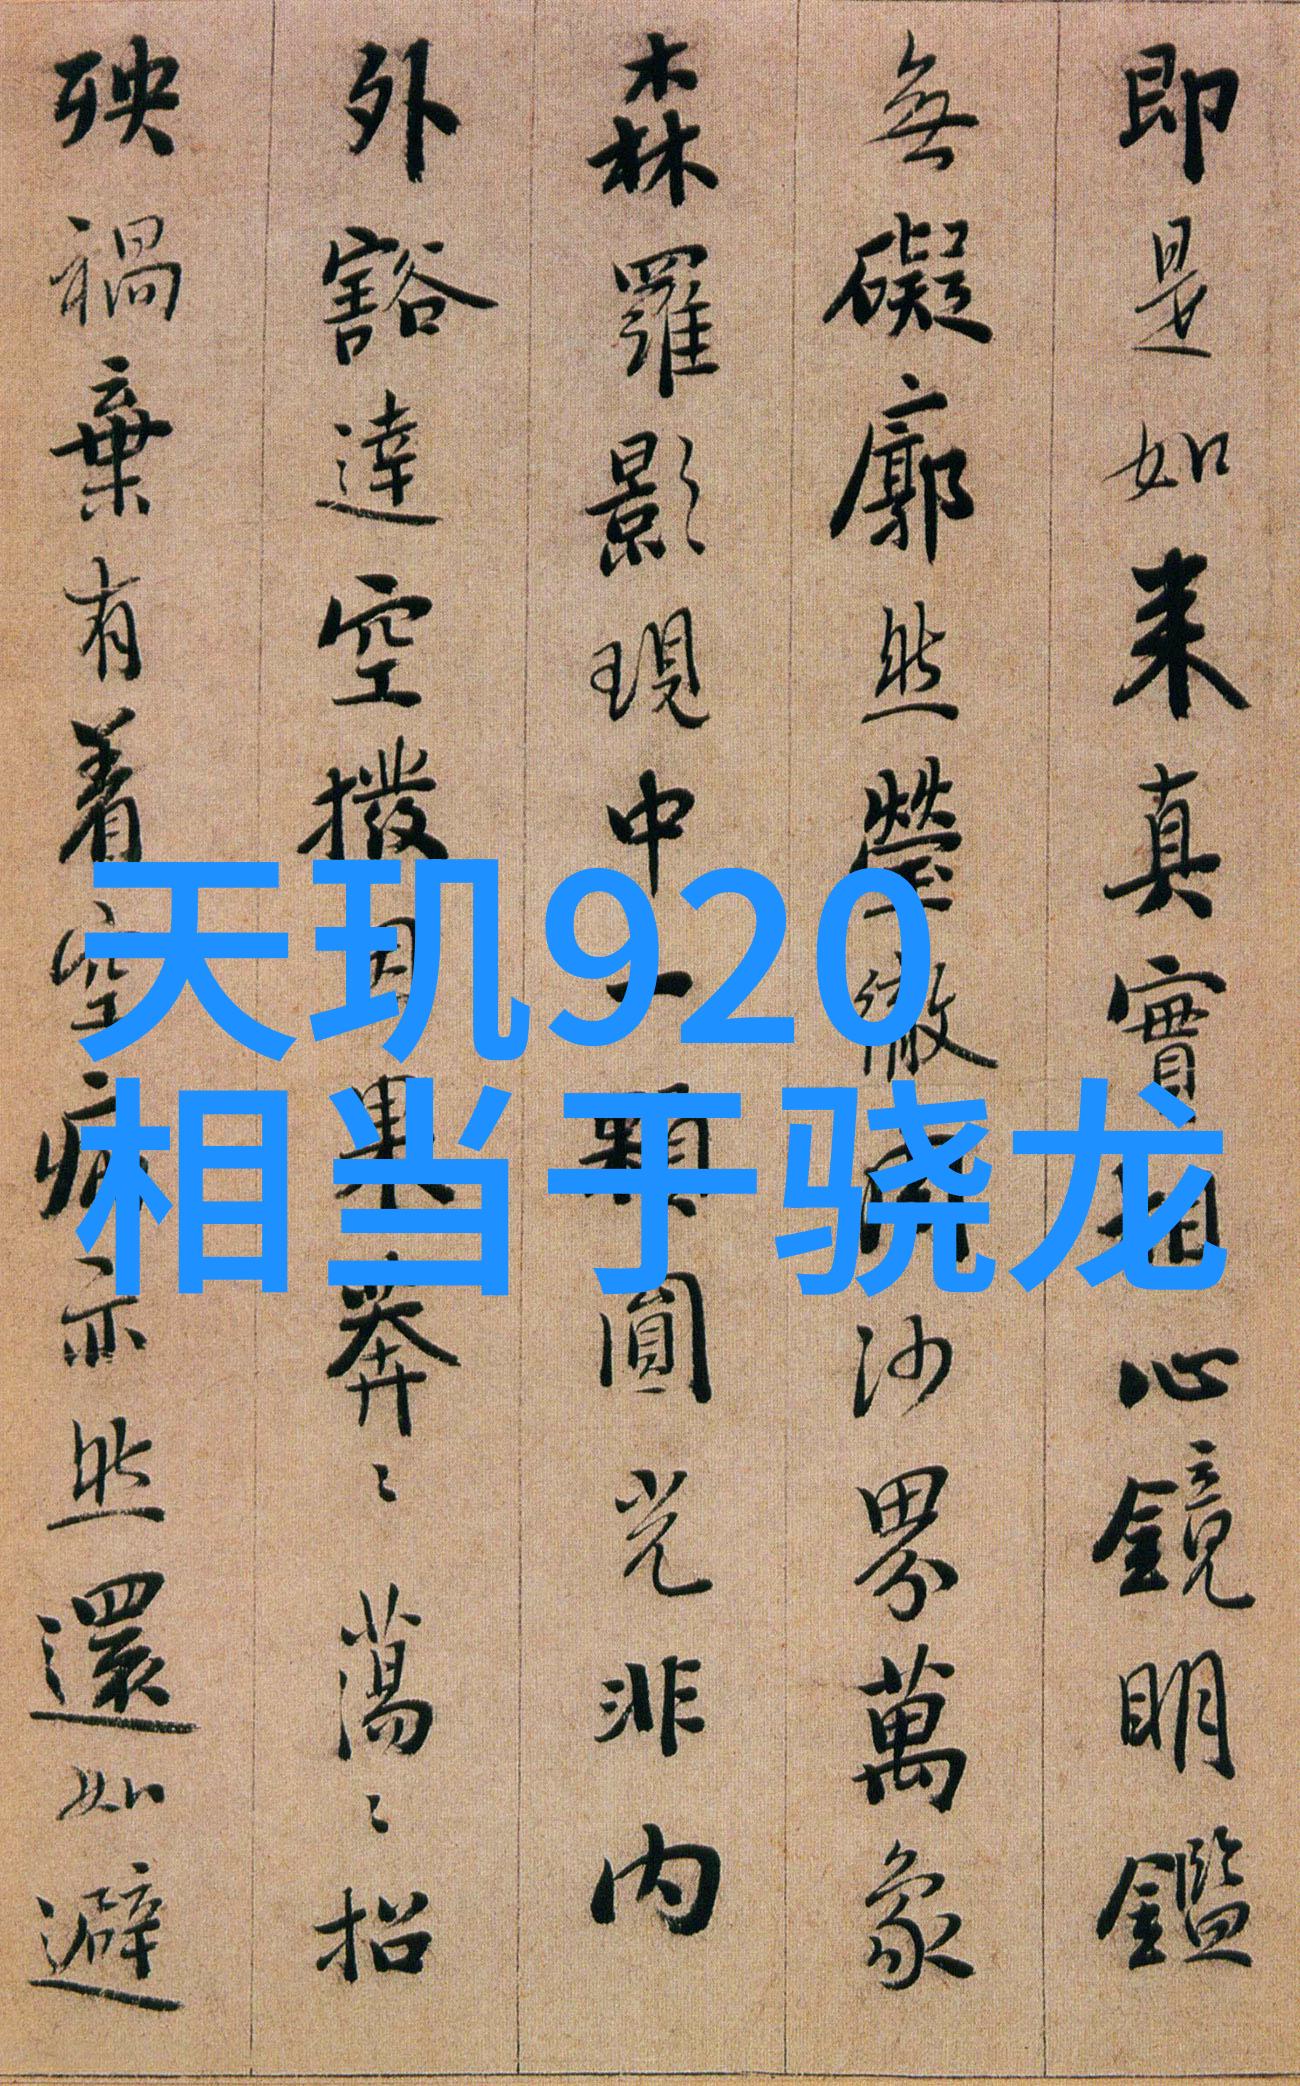 即是如来真實相心鏡明鑑
無礙廓然瑩徹周沙界萬象
森羅影現中一顆圓光非内
外豁達空撥因果莽〻蕩〻招
殃禍棄有着空病亦然還如避
天玑920
相当于骁龙